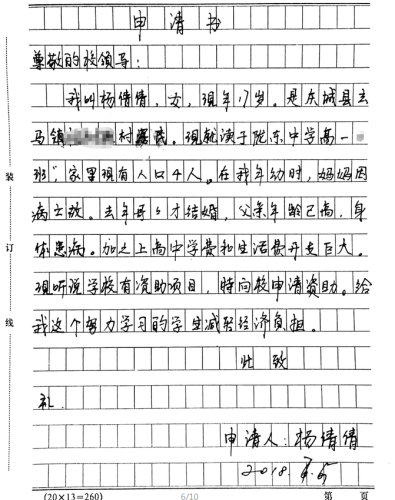 申请书
尊敬的校领导：
我叫杨倩倩，女，现年17岁。是东城县玄
马镇村民。现就读于陇东中学高一
班"家里现有人口4人。在我年幼时，妈妈因
病亡故。去年哥哥才结婚，父亲年龄已高，身
体患病。加之上高中学费和生活费开支巨大。
现听说学校有资助项目，特向校申请资助。给
我这个努力学习的学生减轻经济负担。
此致
礼
申请人：杨倩倩
2018.
装
订
线
(20×13=260)
6/10
第 页